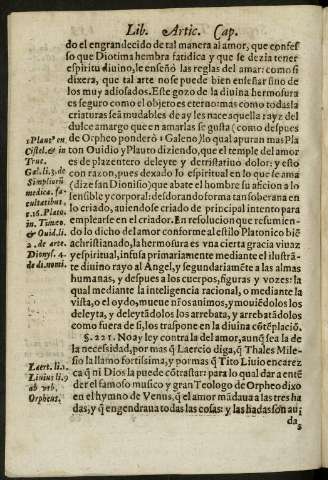 Lib. Artic. Cap.
do el engrandecido de tal manera al amor, que confes
so que Diotima hembra fatidica y que se dezia tener
espiritu diuino, le enseñó las reglas del amar: como si
dixera, que tal arte no se puede bien enseñar sino de
los muy adiosados. Este gozo de la diuina hermosura
es seguro como el objeto es eterno: mas como todas la
criaturas seá mudables de ay les nace aquella rayz del
dulce amargo que en amarlas se gusta (como despues
de Orpheo ponderò 1 Galeno) lo qual apuran mas Pla
ton Ouidio y Plauto diziendo, que el temple del amor
es de plazentero deleyte y de tristatiuo dolor; y esto
con razon, pues dexado lo espiritual en lo que se ama
(dize san Dionisio) que abate el hombre su aficion a lo
sensible y corporal: desdorando forma tan soberana en
lo criado, auiendole criado de principal intento para
emplearse en el criador. En resolucion que resumien-
do lo dicho del amor conforme al estilo Platonico biē
achristianado, la hermosura es vna cierta gracia viuaz
y espiritual, infusa primariamente mediante el ilustrā-
te diuino rayo al Angel, y segundariamēte a las almas
humanas, y despues a los cuerpos, figuras y vozes: la
qual mediante la inteligencia racional, o mediante la
vista, o el oydo, mueue nr̄os animos, y mouiēdolos los
deleyta, y deleytādolos los arrebata, y arrebatādolos
como fuera de si, los traspone en la diuina cōtēplaciō.
§. 221. No ay ley contra la del amor, aunq̄ sea la de
la necessidad, por mas q̄ Laercio diga, q̄ Thales Mile-
sio la llamo fortissima, y por mas q̄ Tito Liuio encarez
ca q̄ ni Dios la puede cōtrastar: para lo qual dar a entē
der el famoso musico y gran Teologo de Orpheo dixo
en el hymno de Venus, q̄ el amor mādaua a las tres ha
das, y q̄ engendraua todas las cosas: y las hadas son au;
da
1 Plaut. en
Cistel. & in
Truc.
Gal. li. 3. de
Simpliciũ
medica. fa-
cultatibus,
Plato.
in Timæo.
& Ouid. li.
2. de arte.
Dionys. 4.
de di. nomi.
Laert. li. 1.
Liuius li. 9
ab vrb.
Orpheus.